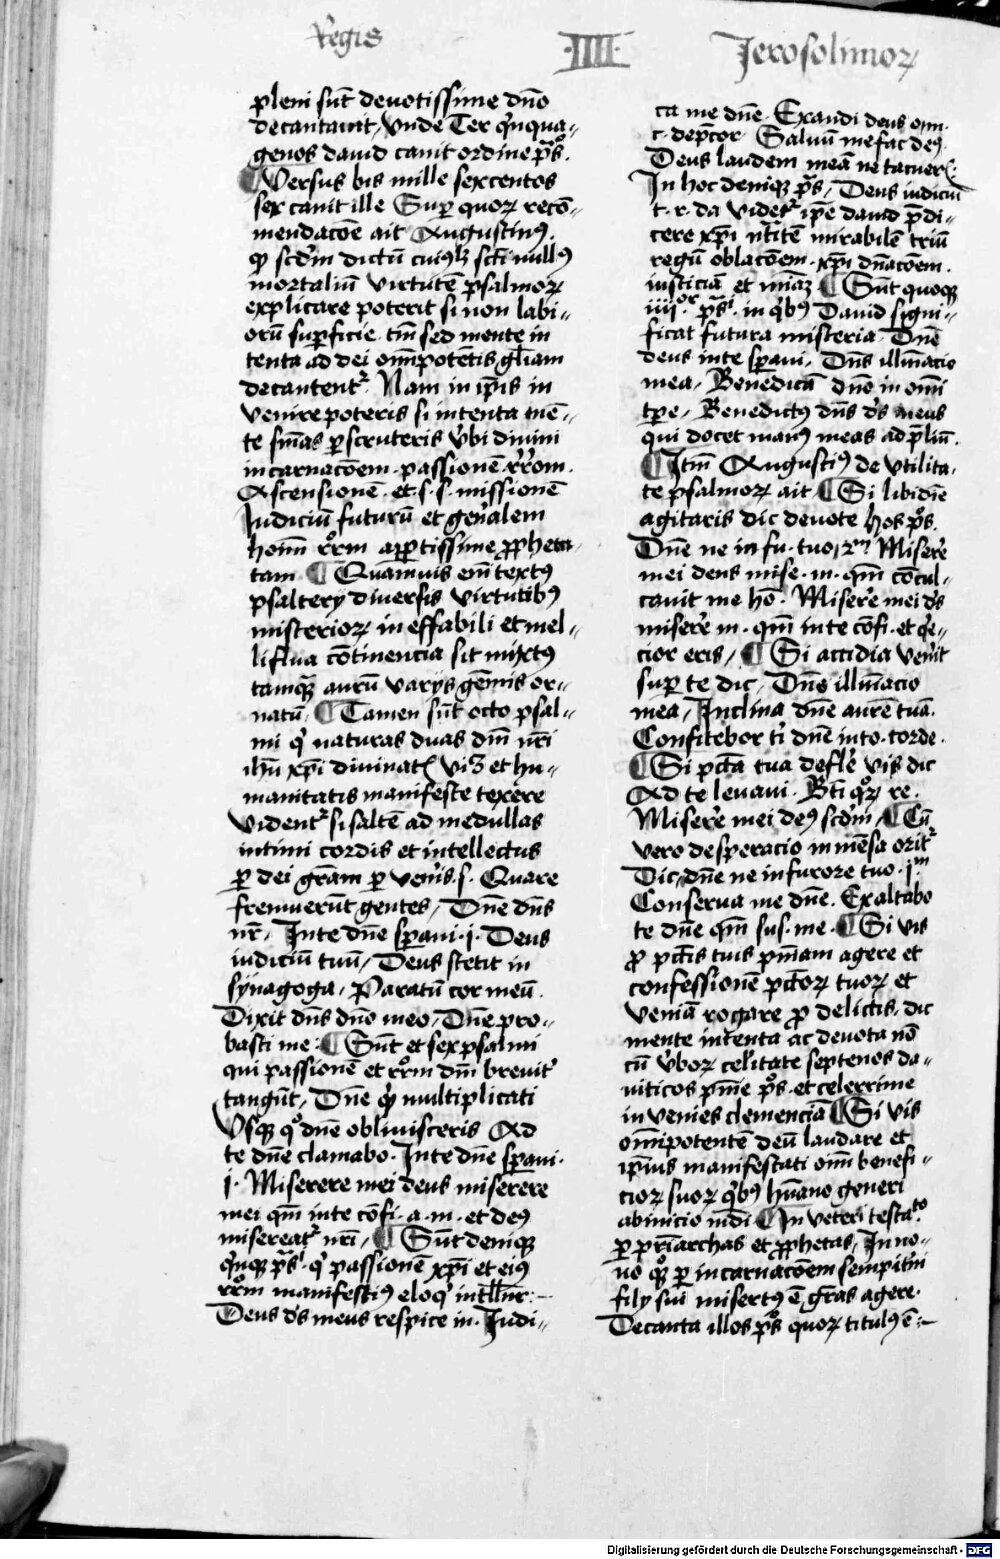 Regis
·IIII·
Jerosolimoꝝ
pleni sūt deuotissime dn̄o
decantauit / vnde Ter qͥnqua⸗
genos dauid canit ordine pͣs.
¶ Versus bis mille sexcentos
sex canit ille Suꝑ quoꝝ recō⸗
mendacōe ait Augustinꝰ.
scd̓m dictū cuiꝰlꝫ scti nullꝰ
mortaliū virtutē psalmoꝝ
explicare poterit si non labi⸗
orū suꝑficie tm̄ sed mente in
tenta ad dei om̄ipotētis gl̄iam
decantentᷣ. Nam in ip̄is in
venire poteris si intenta mē⸗
te sm̄as ꝑscruteris vbi diuini
incarnacōem · passionē rr̄om.
Ascensionē · et · s · s · missionē
Judiciū futurū et gen̄alem
hoīm rr̄m aꝑtissime ꝓpheta⸗
tam ¶ Quamuis em̄ textꝰ
psaltery diuersis virtutibꝰ
misterioꝝ in effabili et mel⸗
liflua cōtinencia sit mixtꝰ
tamqͣꝫ aurū varys gēmis or⸗
natū. ¶ Tamen sūt octo psal⸗
mi qͥ naturas duas dn̄i nr̄i
ihū xp̄i diuinatꝭ vꝫ et hu⸗
manitatis manifeste texere
videntᷣ si saltē ad medullas
intimi cordis et intellectus
ꝑ dei grām ꝑ veneris. s. Quare
fremuerūt gentes / Dn̄e dn̄s
nr̄. In te dn̄e sꝑaui · j · Deus
iudiciū tuū / Deus stetit in
synagoga / Paratū cor meū.
Dixit dn̄s dn̄o meo / Dn̄e pro⸗
basti me ¶ Sūt et sex psalmi
qui passionē et rr̄m dn̄i breuit̓
tangūt / Dn̄e qͥ multiplicati
vsqꝫ qͦ dn̄e obliuisceris Ad
te dn̄e clamabo · In te dn̄e sꝑaui ·
j · Miserere mei deus miserere
mei qm̄ in te cōfi · a · m · et deꝰ
misereatᷣ nr̄i / ¶ Sūt deniqꝫ
qͥnqꝫ pͣs qͥ passionē xp̄i et eiꝰ
rr̄m manifestiꝰ eloqͥ
Deus ds̄ meus respice in · Judi⸗
ca me dn̄e · Exaudi deus om̄.
c · dep̄cor Saluū me fac deꝰ.
Deus laudem meā ne tacuerꝭ.
In hoc deniqꝫ pͣs / Deus iudiciū
t · r · da videtᷣ ip̄e dauid p̄di⸗
cere xp̄i mirabilē triū
regū oblacōem · xp̄i dn̄acōem.
iusticiā et mīaꝫ ¶ Sūt quoqꝫ
iiijor pͣsˡ in qͥbꝰ Dauid signi⸗
ficat futura misteria · Dn̄e
deus in te sꝑaui. Dn̄s illūiacio
mea / Benedicā dn̄o in omī
tꝑe / Benedictꝰ dn̄s ds̄ meus
qui docet manꝰ meas ad p̄liū.
¶ Itm̄ Augustiꝰ de vtilita⸗
te psalmoꝝ ait ¶ Si libidīe
agitaris dic deuote hos pͦs.
Dn̄e ne in fu · tuo 2m Misere
mei deus mise · m · qm̄ cōcul⸗
cauit me hō · Miserē mei ds̄
miserē m · qm̄ in te cōfi · et
cior eris / ¶ Si accidia venīt
suꝑ te dic / Dn̄s illūiacio
mea / Inclina dn̄e aurē tuā.
Confitebor ti dn̄e in to · corde ·
¶ Si pctā tua deflēe vis dic
Ad te leuaui · Bt̄i qͦꝝ re ·
Miserē mei deꝰ scd̓m ¶ Cū
vero desperacio inmēsa oritᷣ
Dic / dn̄e ne in furore tuo · jm
Conserua me dn̄e. Exaltabo
te dn̄e qm̄ sus · me · ¶ Si vis
ꝓ pctīs tuis pn̄iam agere et
confessionē pctōꝝ tuoꝝ et
veniā rogare ꝓ delictis · dic
mente intenta ac deuota nō
cū vboꝝ celītate septenos da⸗
uiticos pn̄ie pͦs · et celerrime
in venies clemenciā ¶ Si vis
om̄ipotentē deū laudare et
ip̄ius manifestati om̄i benefi⸗
cioꝝ suoꝝ qͥbꝰ hūano generi
ab inicio mūdi ¶ In veteri testa.to
ꝑ pr̄iarchas et ꝓphetas / In no⸗
uo qͦꝫ ꝑ incarnacōem sempit̓ni
fily sui misertꝰ ē gr̄as agere ·
Decanta illos pͦs quoꝝ titulꝰ ē
Digitalisierung gefördert durch die Deutsche Forschungsgemeinschaft - DFG